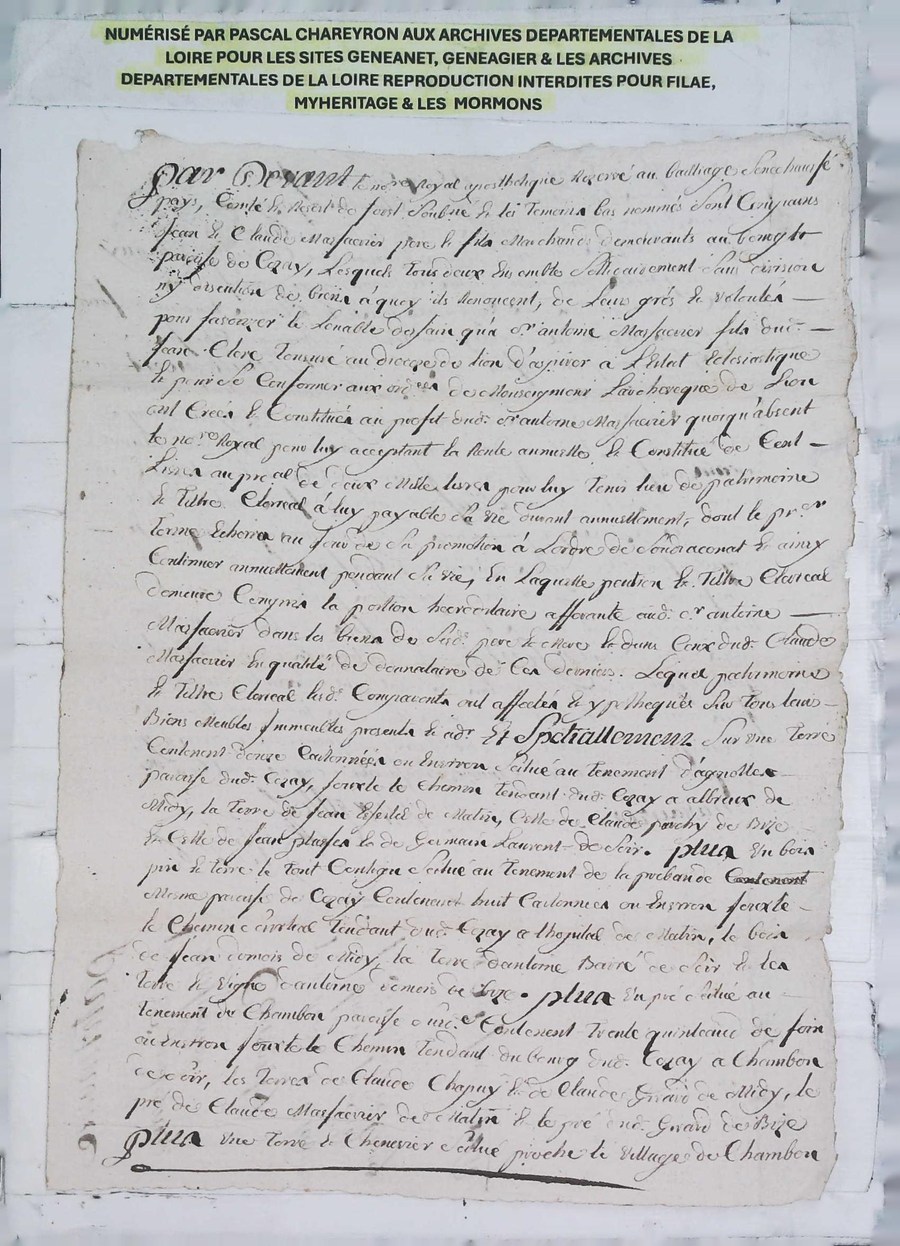 NUMÉRISÉ PAR PASCAL CHAREYRON AUX ARCHIVES DEPARTEMENTALES DE LA
LOIRE POUR LES SITES GENEANET, GENEAGIER & LES ARCHIVES
DEPARTEMENTALES DE LA LOIRE REPRODUCTION INTERDITES POUR FILAE,
MYHERITAGE & LES MORMONS
par Devant le no.re Royal apostholique Rezervé au bailliage Senechaussé
pays, Comté & Resort de forest Soubné & les Temoins bas nommés sont
Jean & Claude Massacrier pere & fils Marchands demeurants au bourg &
paroisse de Cezay, Lesquels Tous deux Ensemble Sollidairement Sans division
ny discution de biens à quoy ils Renoncent, de Leurs grés & volontés —
pour favorizer le Louable dessain qu'a s.r antoine Massacrier fils dud. —
Jean Clerc Tonsuré au dioceze de Lion d'aspirer à L'Estat Eclesiastique
& pour Se Conformer aux ord.ces de Monseigneur Larcheveque de Lion
ont Créés & Constitués au profit dud. s.r antoine Massacrier quoiqu'absent
le no.re Royal pour luy acceptant la Rente annuelle & Constitué de Cent —
Livres au p.al de deux Mille livres pour luy Tenir lieu de patrimoine
& Tiltre Clerical à luy payable Sa vie durant annuellement, dont le pr.er
terme Echerra au jour de Sa promotion à Lordre de Soudiaconat & ainsy
Continuer annuellement pendant Sa vie, En Laquelle pention & Tiltre Clerical
demeure Compris la portion hereditaire afferante aud. s.r antoine —
Massacrier dans les biens de Sesd. pere & Mere & dans Ceux dud. Claude
Massacrier En qualité de donnataire de Ces derniers. Lequel patrimoine
& Tiltre Clerical lesd. Comparants ont affectés & ypothequés Sur Tous leurs
Biens Meubles Immeubles presents & ad. Et Spétiallement Sur une Terre
Contenent douze Cartonnées ou Environ Scitué au tenement d'
paroisse dud. Cezay, jouxte le Chemin Tendant dud. Cezay a albieux de
Midy, la Terre de Jean de Matin, Celle de Claude de Bize
& Celle de Jean & de Germain Laurent de Soir. plus Un bois
pin & terre le tout Contigu Scitué au Tenement de la prebande Contenent
Mesme paroisse de Cezay Contenent huit Cartonnées ou Environ jouxte —
le Chemin Tendant dud. Cezay a lhopital de Matin, le bois
de Jean de Midy, la Terre d'antoine Barré de Soir & les
Terre & Vigne d'antoine de Bize. plus Un pré Scitué au
tenement du Chambon paroisse Contenent trente quinteaux de foin
ou Environ jouxte le Chemin Tendant du bourg dud. Cezay a Chambon
de Soir, les Terres de Claude Chapuy & de Claude Girard de Midy, le
pré de Claude Massacrier de Matin & le pré dud. Girard de Bize
plus une Terre & Chenevier Scitué proche le village de Chambon